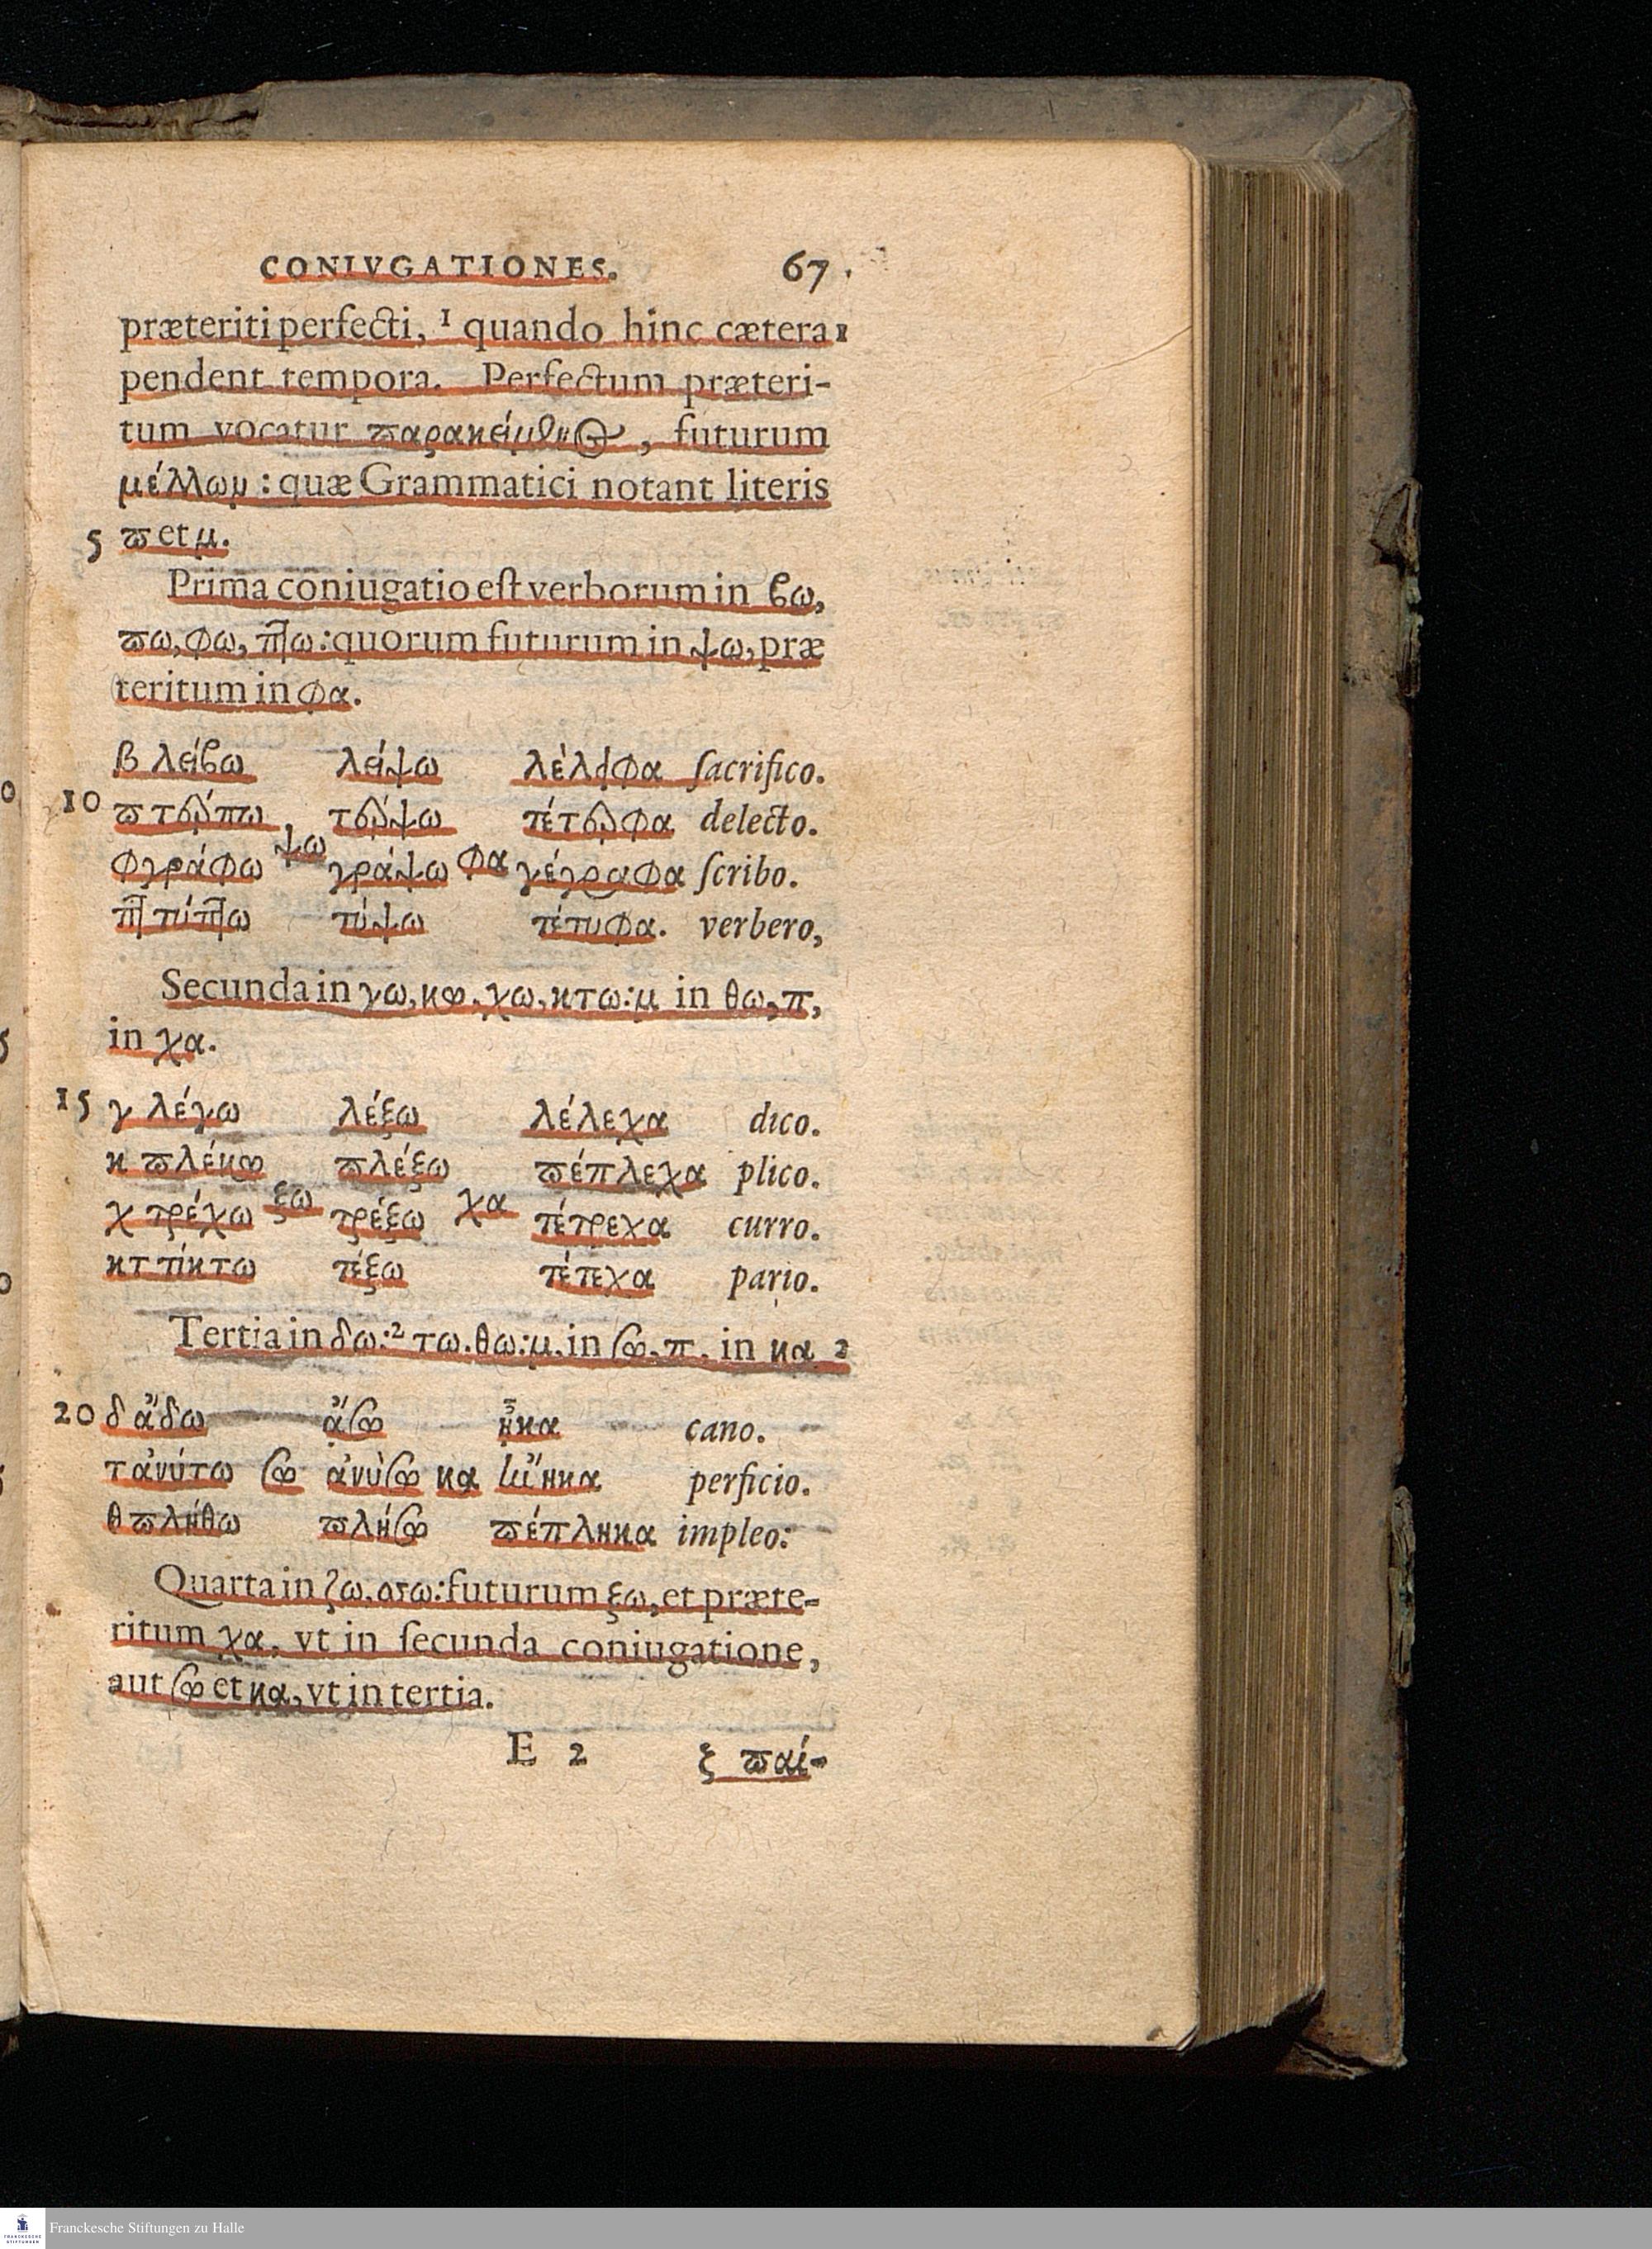 CONIVGATIONES. 67.
præteriti perfecti, 1 quando hinc cætera 1
pendent tempora. Perfectum præteri-
tum vocatur ϖαρακείμενος, futurum
μέλλων: quæ Grammatici notant literis
5 ϖ et μ.
Prima coniugatio eſt verborum in ϐω,
ϖω, φω, πτω: quorum futurum in ψω, præ
teritum in φα.
β λείϐω λείψω λέλειφα ſacrifico.
10 ϖ τέρπω τέρψω τέτερφα delecto.
φ γράφω ψω γράψω φα γέγραφα ſcribo.
πτ τύπτω τύψω τέτυφα. verbero,
Secunda in γω, κω, χω, κτω: μ in θω, π,
in χα.
15 γ λέγω λέξω λέλεχα dico.
κ ϖλέκω ϖλέξω ϖέπλεχα plico.
χ τρέχω ξω τρέξω χα τέτρεχα curro.
κτ τίκτω τέξω τέτεχα pario.
Tertia in δω: 2 τω. θω: μ. in σω. π. in κα 2
20 δ ἄδω ἄσω ἦκα cano.
τ ἀνύτω σω ἀνύσω κα perficio.
θ ϖλήθω ϖλήσω ϖέπληκα impleo:
Quarta in ζω. σσω: futurum ξω, et præte-
ritum χα, vt in ſecunda coniugatione,
aut σω et κα, vt in tertia.
E 2 ξ ϖαί-
Franckesche Stiftungen zu Halle
FRANCKESCHE
STIFTUNGEN